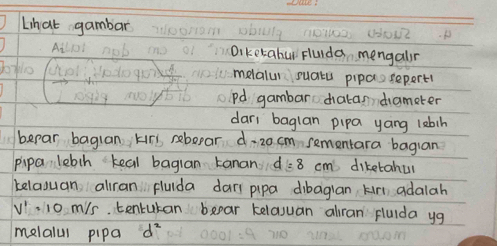 Lihat gambar
Diketahui fluida mengalir
melalui suatu pipa seperti
pd gambar diatas diameter
dari bagian pipa yang lebih
besar bagian kiri sebesar d = 20 cm sementara bagian
pipa lebih kecil bagian kanan d = 8 cm diketahui
kelajuan aliran fluida dari pipa dibagian kiri adalah
V' = 10 m/s. tentukan besar kelajuan aliran fluida yg
melalui pipa d²